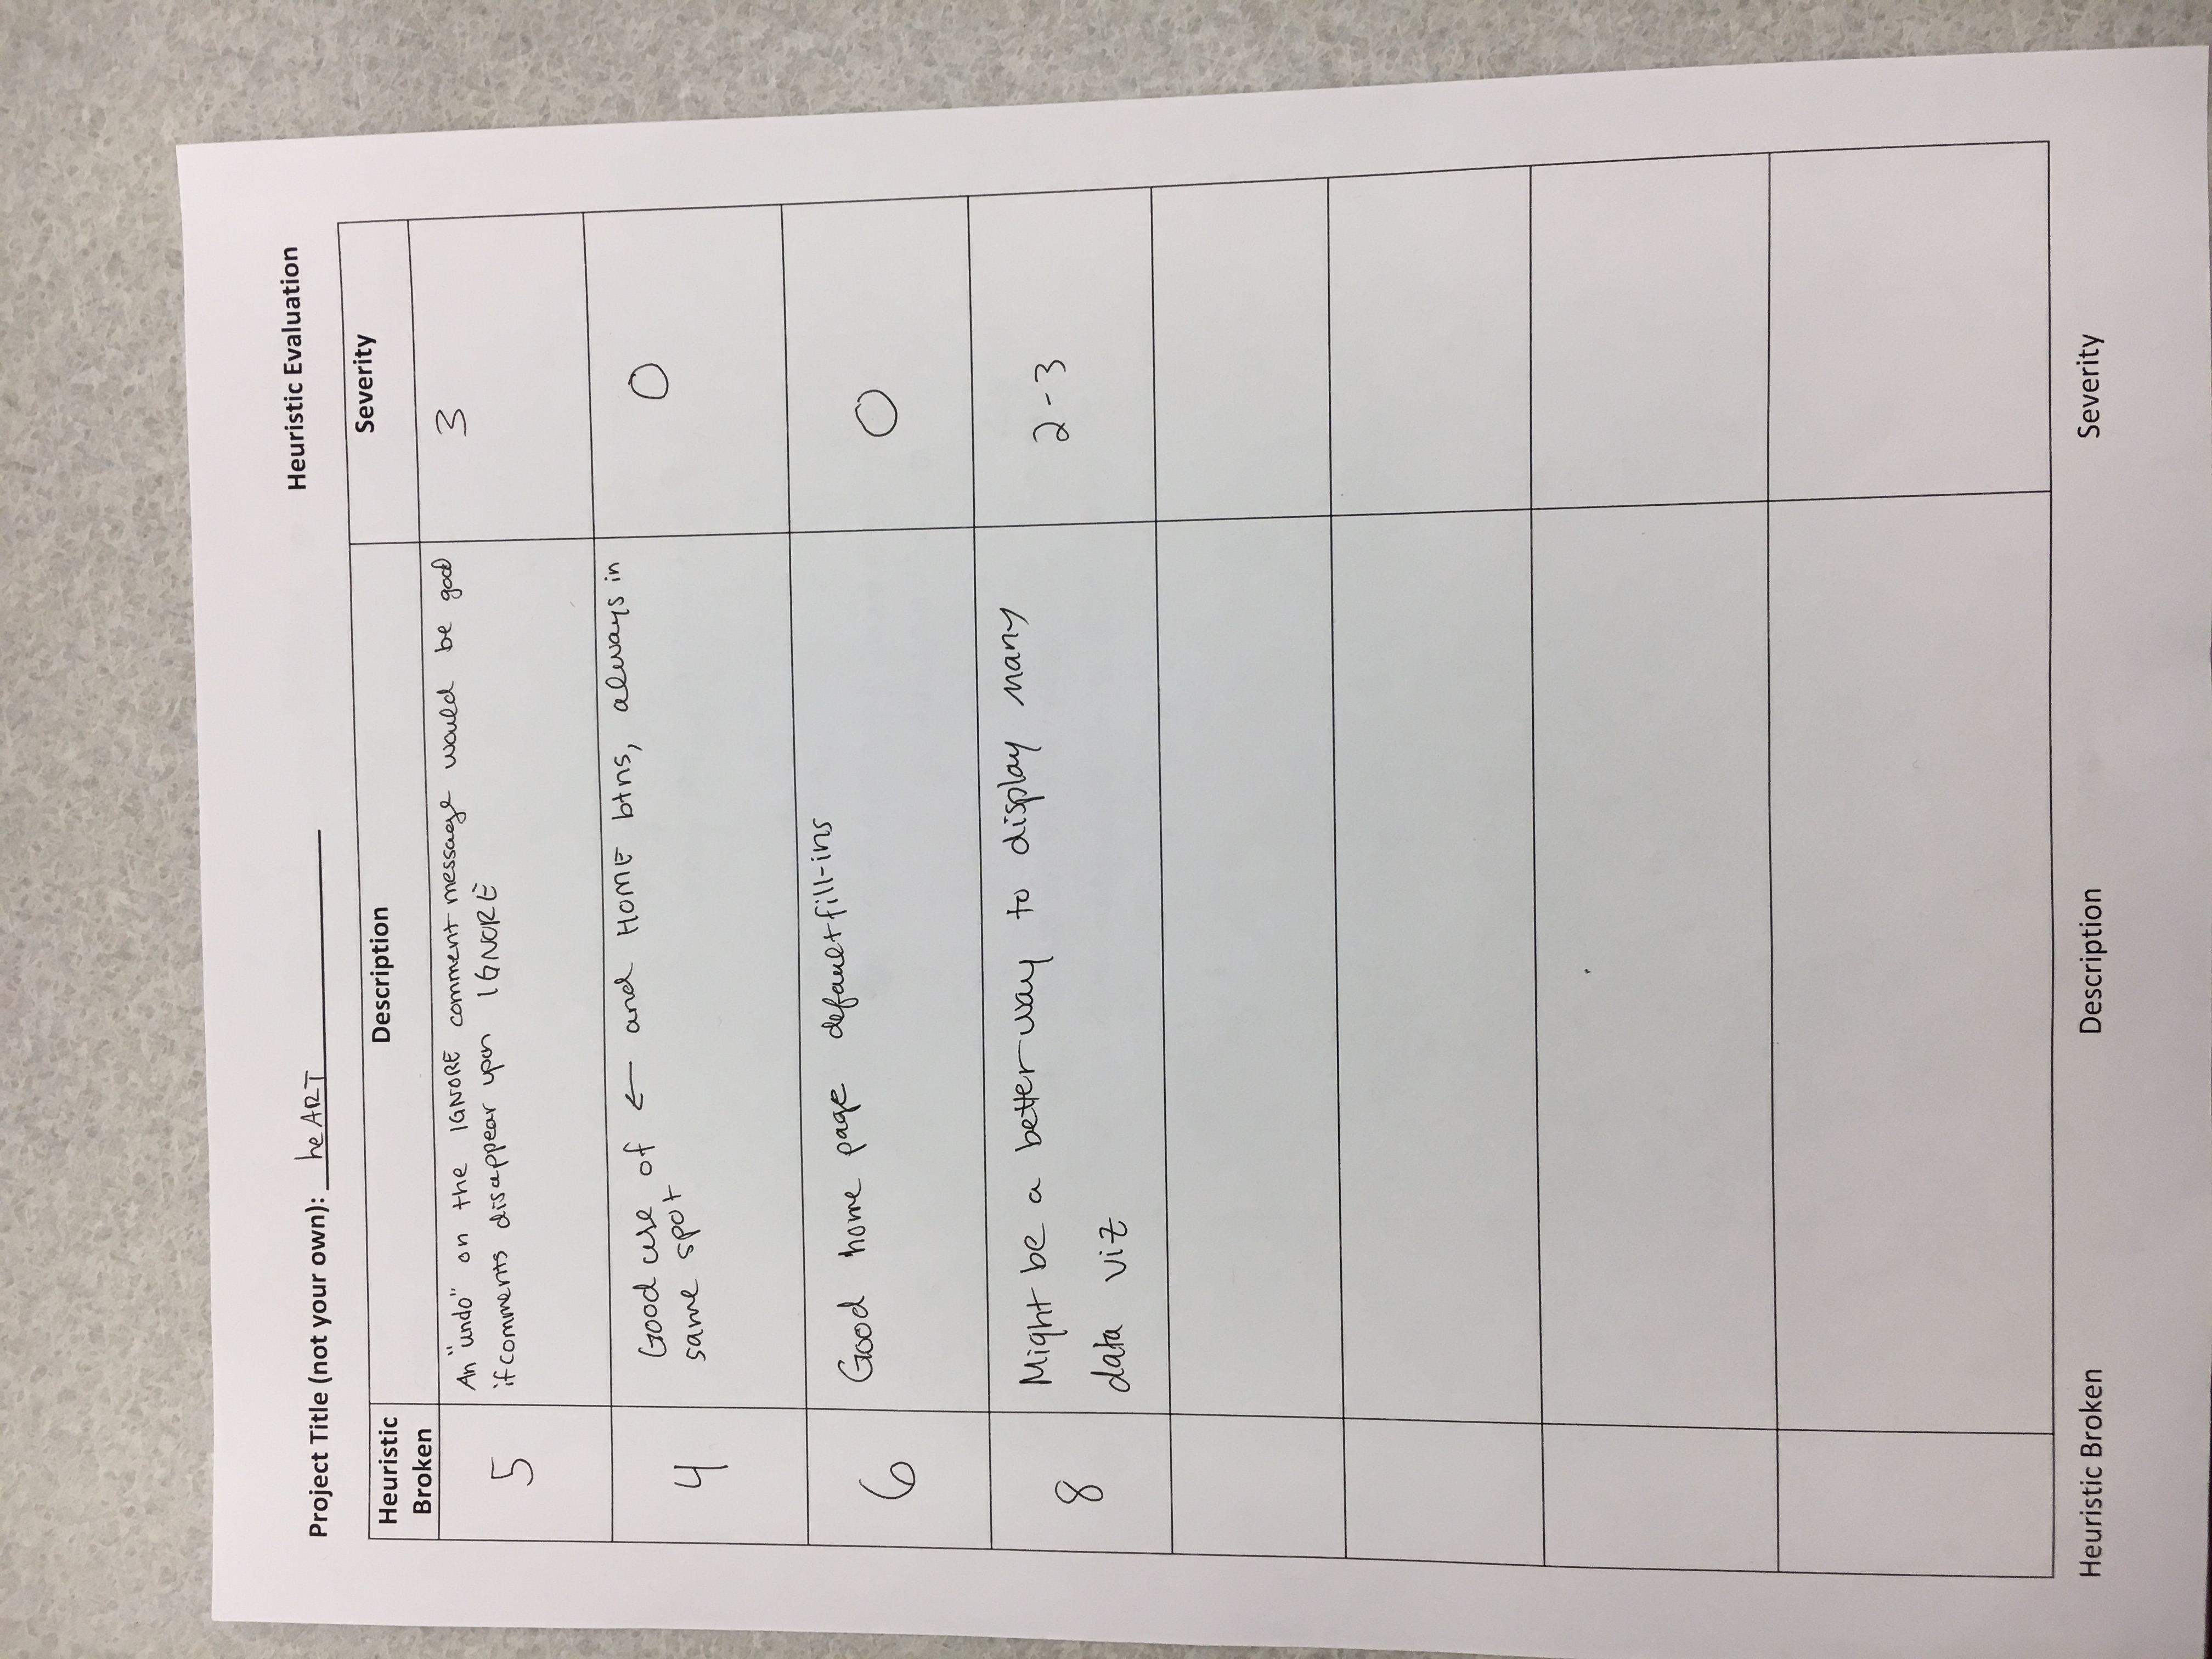 Heuristic Evaluation
Project Title (not your own): heART
Heuristic
Broken
Description
Severity
5
An "undo" on the IGNORE comment message would be good
if comments disappear upon IGNORE
3
4
Good use of ← and HOME btns, always in
same spot
0
6
Good home page default fill-ins
0
8
Might be a better way to display many
data viz
2-3
Heuristic Broken
Description
Severity